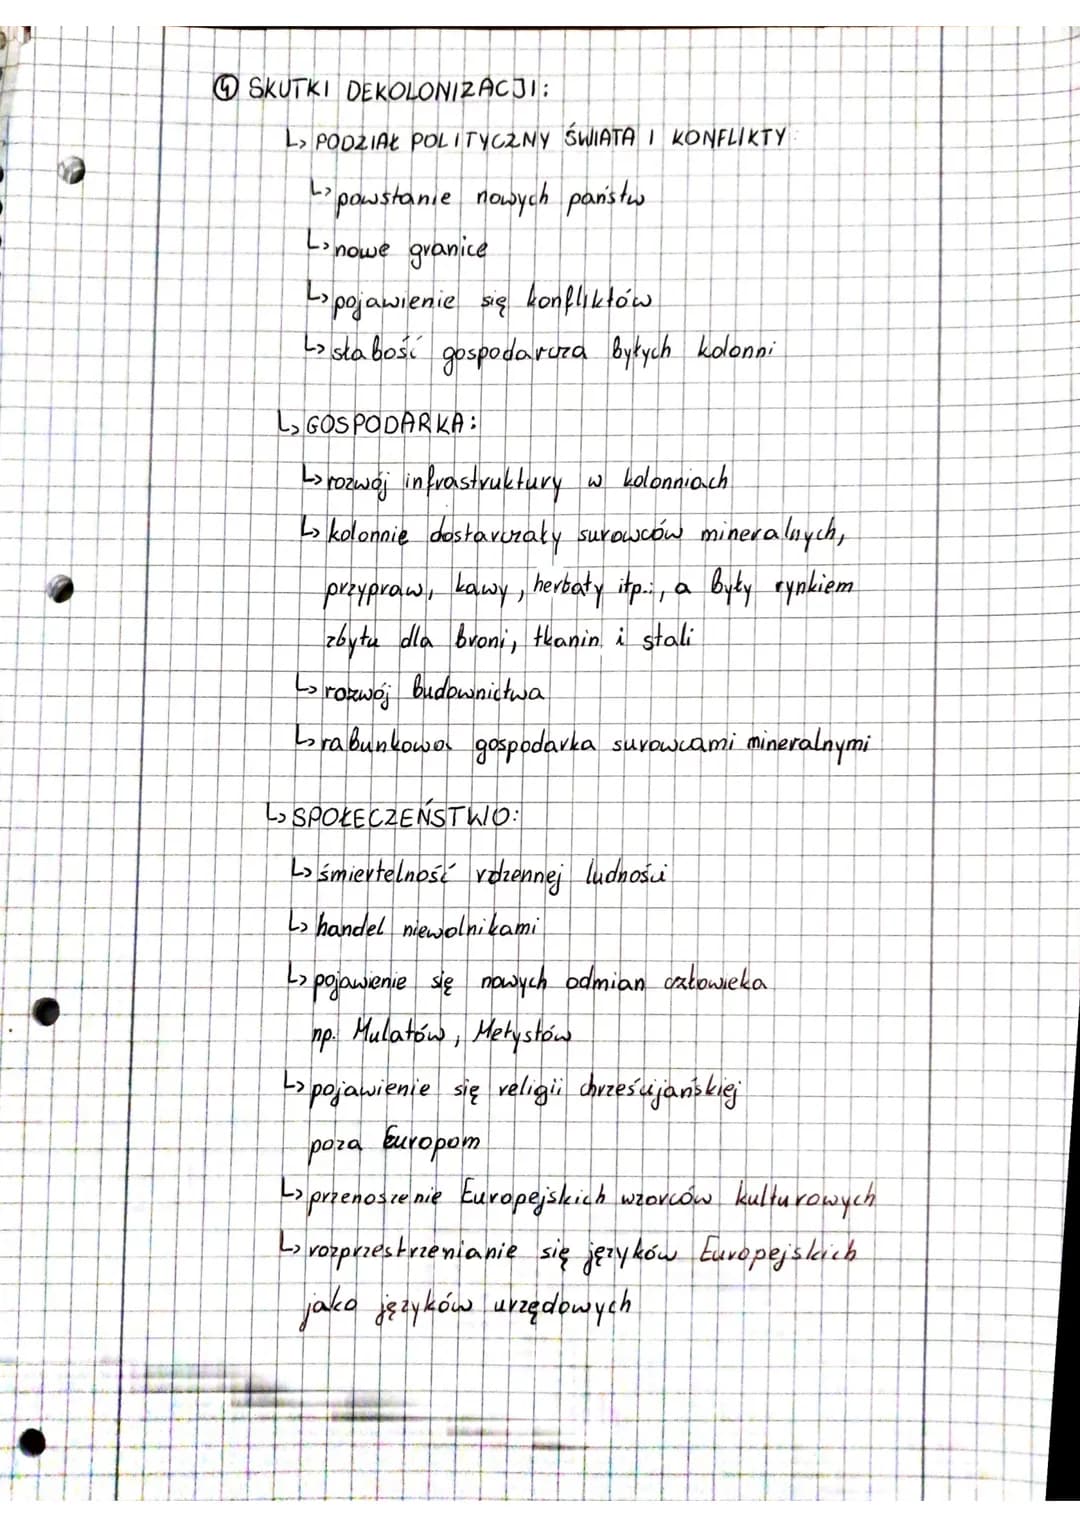 ④ SKUTKI DEKOLONIZACJI:
↳ PODZIAŁ POLITYCZNY ŚWIATA I KONFLIKTY:
↳ powstanie nowych państw
↳ nowe granice
↳ pojawienie się konfliktów
↳ słabość gospodarcza byłych kolonni
↳ GOSPODARKA:
↳ rozwój infrastruktury w kolonniach
↳ kolonnie dostarczały surowców mineralnych,
przypraw, kawy, herbaty itp.:, a były rynkiem
zbytu dla broni, tkanin i stali
↳ rozwój budownictwa
↳ rabunkowa gospodarka surowcami mineralnymi
↳ SPOŁECZEŃSTWO:
↳ śmiertelność rdzennej ludności
↳ handel niewolnikami
↳ pojawienie się nowych odmian człowieka
np. Mulatów, Metystów
↳ pojawienie się religii chrześcijańskiej
poza Europom
↳ przenoszenie Europejskich wzorców kulturowych
↳ rozprzestrzenianie się języków Europejskich
jako języków urzędowych